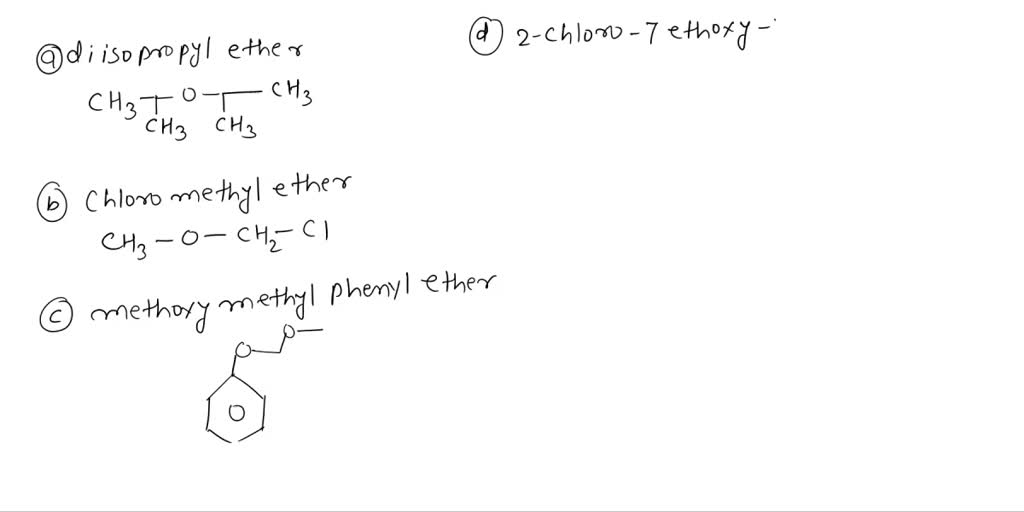 (a) diisopropyl ether
CH3 O CH3
CH3 CH3
(b) Chloro methyl ether
CH3 - O - CH2 - Cl
(c) methoxy methyl phenyl ether
O
O
(d) 2-chloro-7 ethoxy-